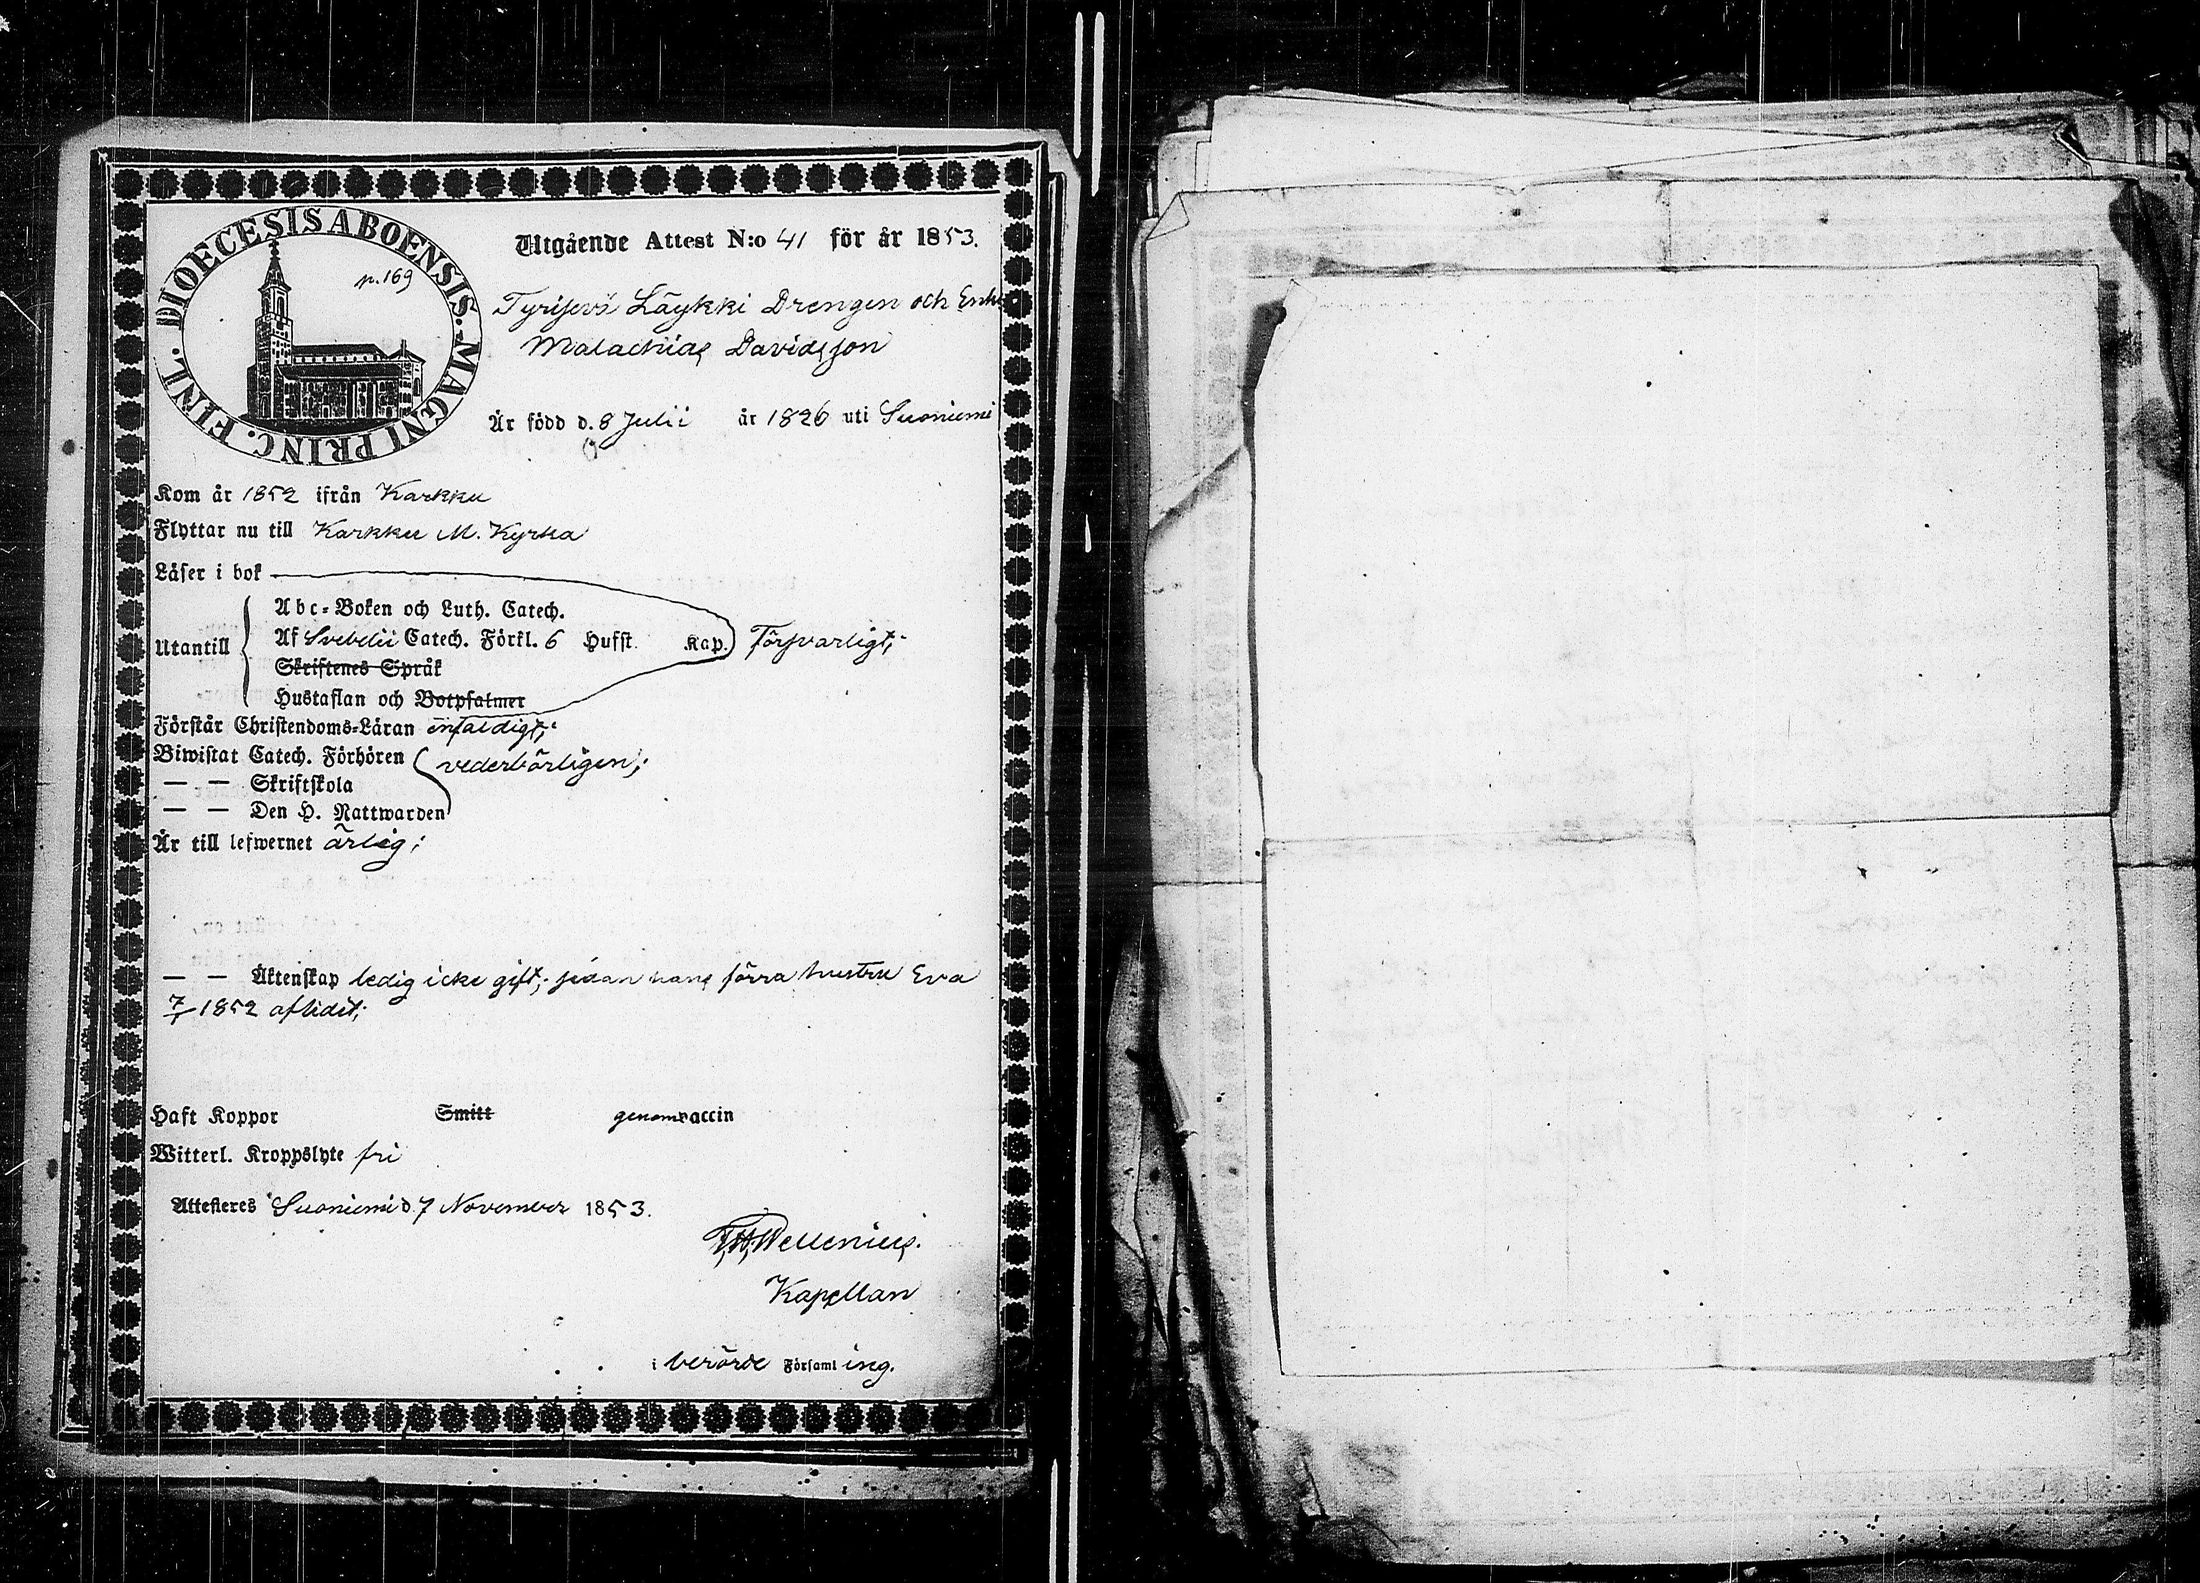 DIOECESIS ABOENSIS. MAGNI PRINC. FINL.
p. 169
Utgående Attest N:o 41 för år 1853.
Läykki Drengen och
Malachias Davidsson
Är född d. 8 Julii år 1826 uti Suoniemi
Kom år 1852 ifrån Karkku
Flyttar nu till Karkku M. Kyrka
Läser i bok
Abc-Boken och Luth. Catech.
Utantill Af Svebelii Catech. Förkl. 6 Hufst. Kap. Försvarligt;
Skriftenes Språk
Hustaflan och Botpsalmer
Förstår Christendoms-Läran enfaldigt;
Biwistat Catech. Förhören vederbörligen;
— — Skriftskola
— — Den H. Nattwarden
Är till lefwernet ärlig;
— — Äktenskap ledig icke gift; sedan hans förra hustru Eva
1852 aflidit;
Haft Koppor Smitt genom vaccin
Witterl. Kroppslyte fri
Attesteres Suoniemi d. 7 November 1853.
Wellenius.
Kapellan
i berörde Församling.